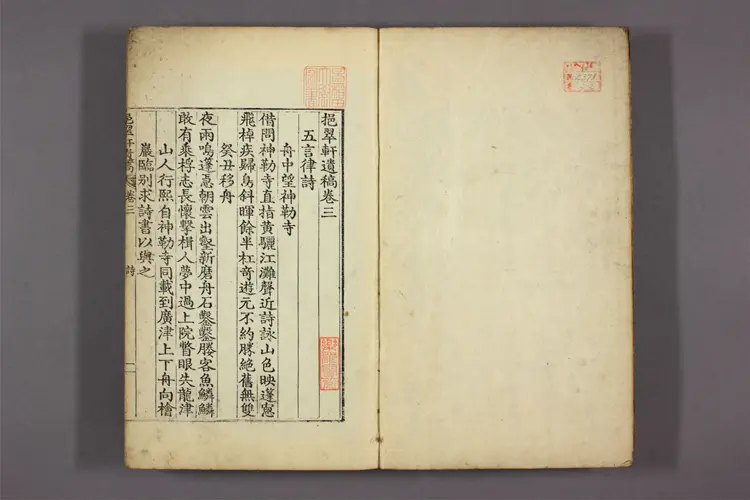 挹翠軒遺稿卷三
五言律詩
舟中望神勒寺
借問神勒寺直指黃驪江灘聲近詩詠山色映蓬窓
飛棹疾歸鳥斜暉餘半杠奇遊元不約勝絶舊無雙
癸丑移舟
夜雨鳴蓬悤朝雲出壑新磨舟石鑿鑿媵客魚鱗鱗
敢有乘桴志長懷擊楫人夢中過上院瞥眼失龍津
山人行熙自神勒寺同載到廣津上下舟向檜
巖臨别求詩書以與之
挹翠軒遺稿 卷三 詩 一